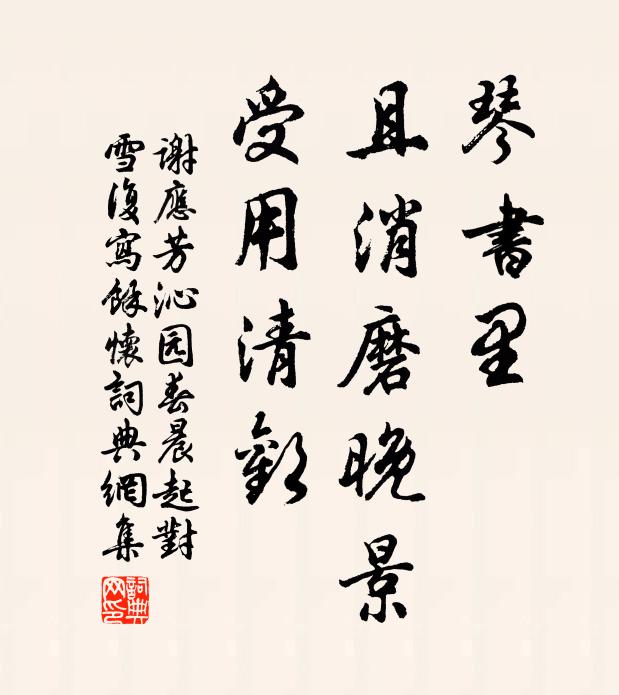 琴書里
且消磨晚景
受用清歡
謝應芳沁园春晨起對
雪復寫餘懷詞典網集
詞典网印